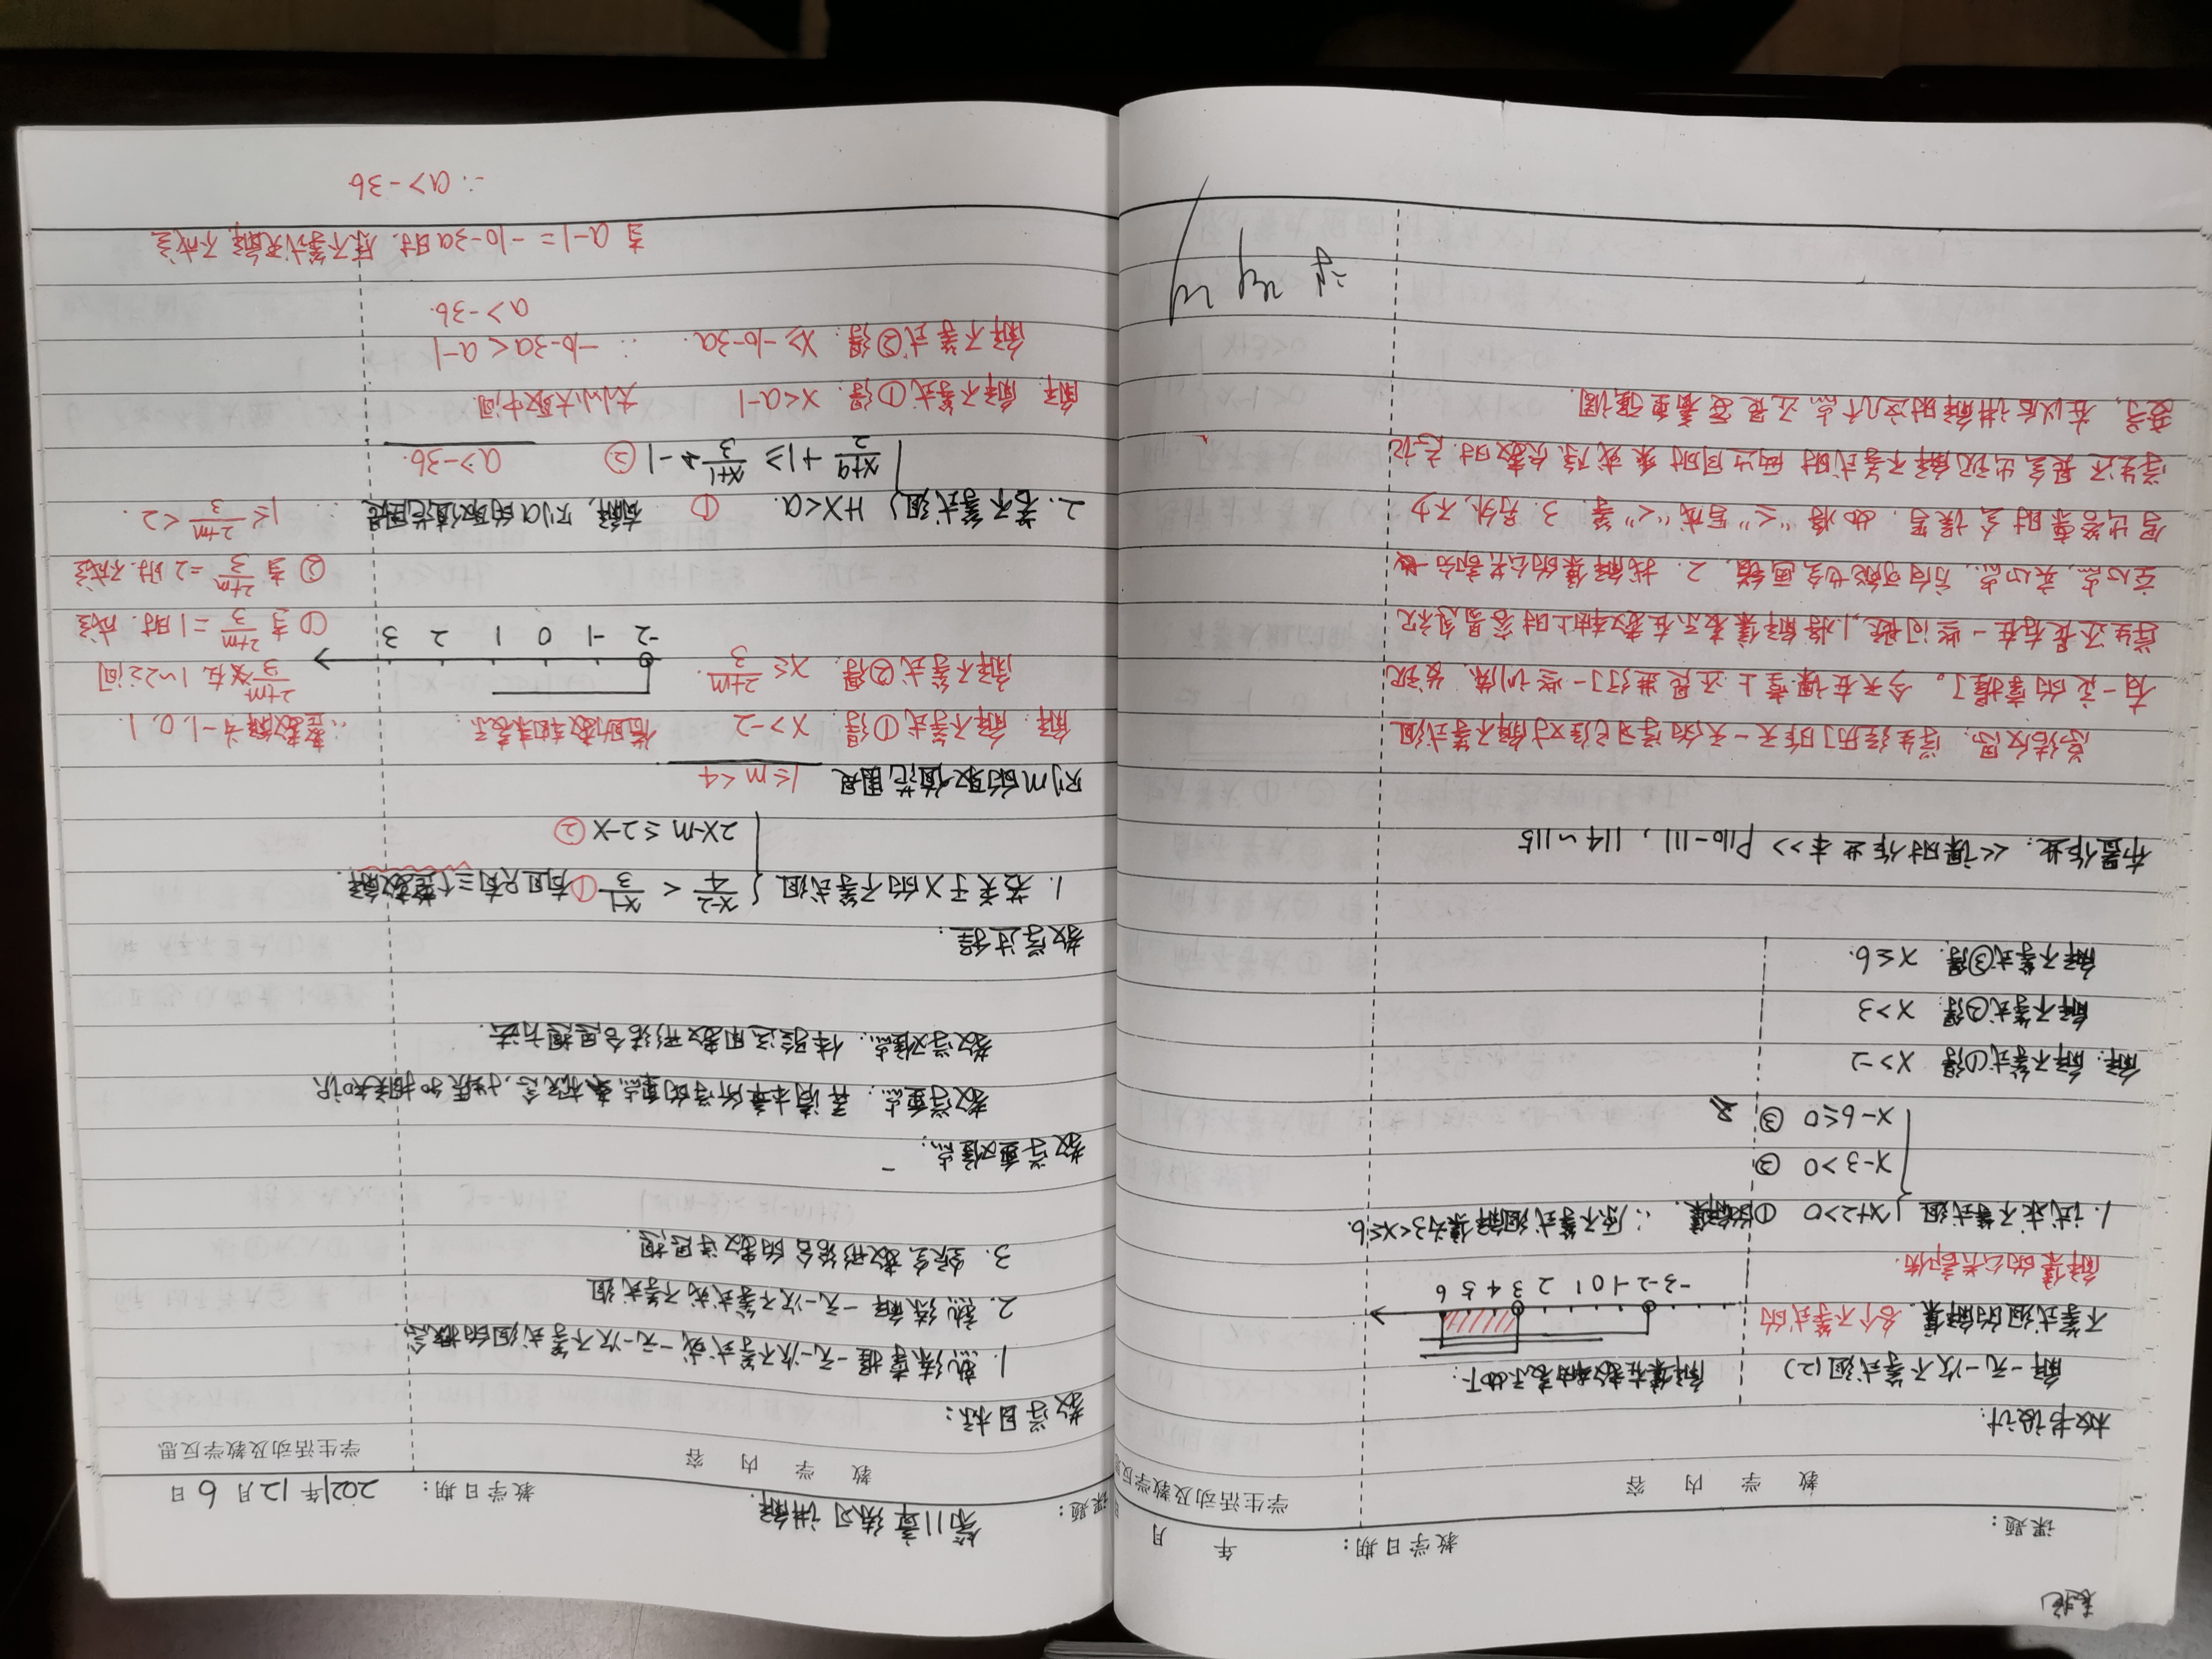 课题：
教学日期： 年 月
教 学 内 容
学生活动及教学反思
板书设计：
解一元一次不等式组(2)
解集在数轴表示如下：
不等式组的解集：各个不等式的
解集的公共部分.
-3 -2 -1 0 1 2 3 4 5 6
1. 试求不等式组 { x+2>0 ① 的解集. ∴原不等式组解集为3<x≤6.
x-3>0 ②
x-6≤0 ③
解：解不等式①得 x>-2
解不等式②得：x>3
解不等式③得：x≤6.
布置作业：<<课时作业本>> P110-111，114~115
总结反思：学生经历了昨天一天的学习已经对解不等式组
有一定的掌握了。今天在课堂上还是进行了一些训练，发现
学生还是存在一些问题，1.将解集表示在数轴上时容易忽视
空心点，实心点，方向可能也会画错. 2. 找解集的公共部分
写出答案时会误写.如将“≤”写成“<”等 3. 另外，不少
学生还是会出现解不等式时两边同时乘或除负数时忘记
变号，在以后讲解时这几个点还是要着重强调.
课题：第11章练习讲解.
教学日期： 2021年12月6日
教 学 内 容
学生活动及教学反思
教学目标：
1. 熟练掌握一元一次不等式或一元一次不等式组的概念.
2. 熟练解一元一次不等式或不等式组
3. 综合数形结合的数学思想.
教学重难点：
教学重点：弄清本章所学的重点概念，性质和相关知识
教学难点：体验运用数形结合思想方法.
教学过程：
1. 若关于x的不等式组 { x-2/4 < x-1/3 ① 有且只有三个整数解.
2x-m≤2-x ②
则m的取值范围是 1≤m<4
解：解不等式①得 x>-2 借助数轴来表示. ∴整数解为-1,0,1
解不等式②得：x≤2+m/3.
-2 -1 0 1 2 3
2+m/3 落在1~2之间
① 当2+m/3=1时.成立
② 当2+m/3=2时.不成立
∴ 1≤2+m/3<2.
2. 若不等式组 { 1+x<a. ① 有解，则a的取值范围是
x+9/2+1≥x+1/3-1 ② a>-36.
解：解不等式①得：x<a-1 大小小大取中间.
解不等式②得：x≥-6-3a. ∴ -6-3a<a-1
a>-36.
当a-1=-6-3a时.原不等式无解，不成立
∴ a>-36